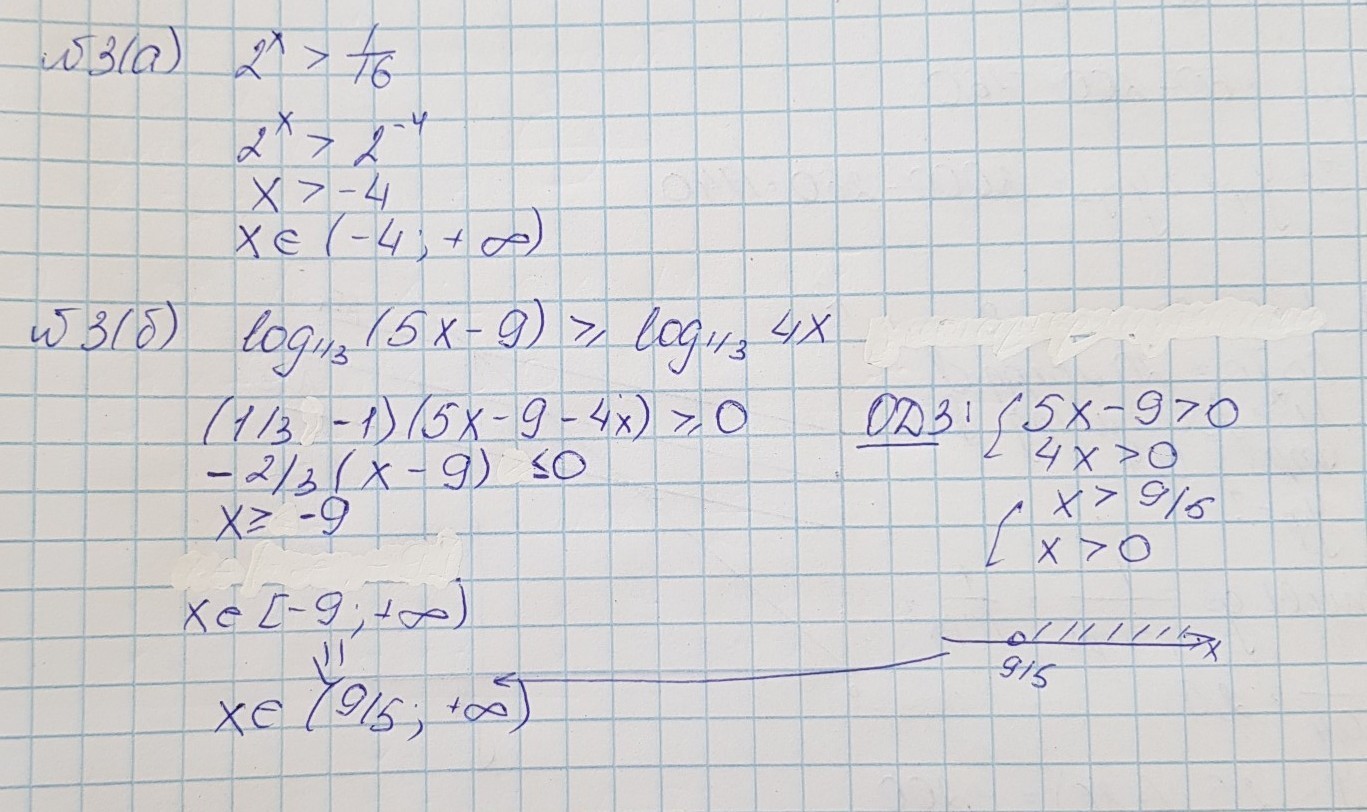 №3(а) 2^x > 1/16
2^x > 2^-4
x > -4
x ∈ (-4; +∞)
№3(б) log_1/3 (5x-9) ≥ log_1/3 4x
(1/3 -1)(5x-9-4x) ≥ 0
-2/3 (x-9) ≤0
x≥ -9
x ∈ [-9; +∞)
x ∈ (9/5; +∞)
ОДЗ: { 5x-9>0
4x>0
{ x > 9/5
x > 0
9/5 x